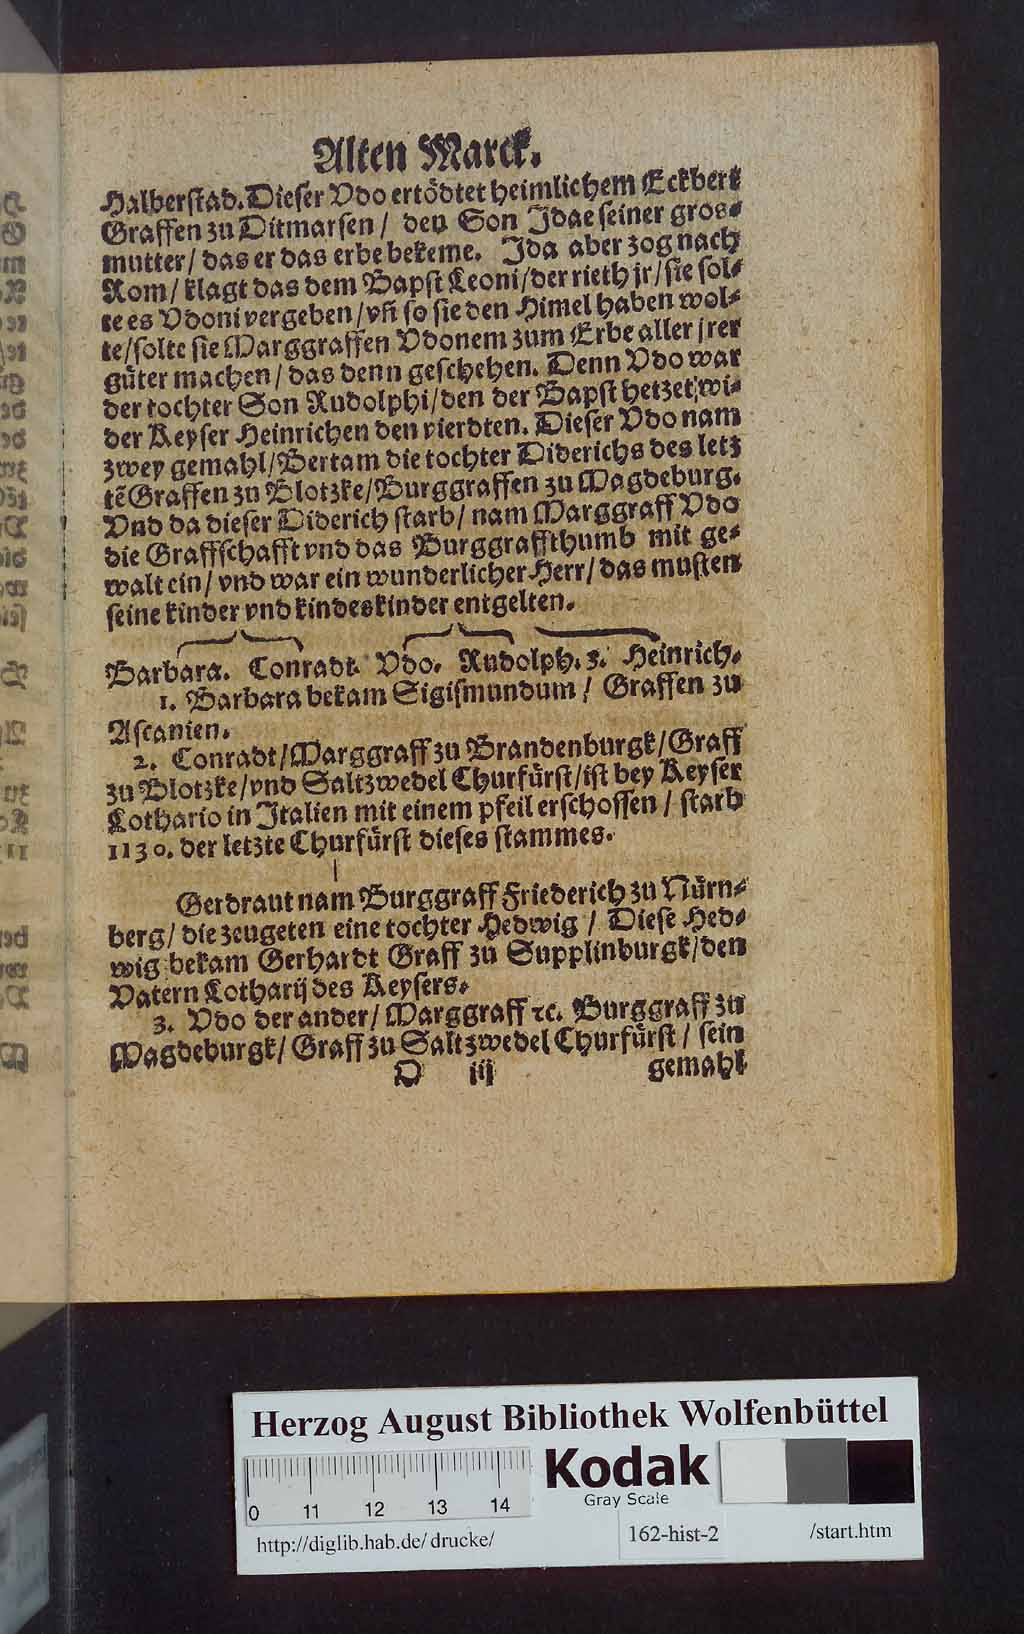 Alten Marck.
Halberstad. Dieser Vdo ertödtet heimlichem Eckbert
Graffen zu Ditmarsen / den Son Idae seiner gros⸗
mutter / das er das erbe bekeme. Ida aber zog nach
Rom / klagt das dem Bapst Leoni / der rieth jr / sie sol⸗
te es Vdoni vergeben / vñ so sie den Himel haben wol⸗
te / solte sie Marggraffen Vdonem zum Erbe aller jrer
güter machen / das denn geschehen. Denn Vdo war
der tochter Son Rudolphi / den der Bapst hetzet wi⸗
der Keyser Heinrichen den vierdten. Dieser Vdo nam
zwey gemahl / Bertam die tochter Diderichs des letz
tẽ Graffen zu Plotzke / Burggraffen zu Magdeburg.
Vnd da dieser Diderich starb / nam Marggraff Vdo
die Graffschafft vnd das Burggraffthumb mit ge⸗
walt ein / vnd war ein wunderlicher Herr / das musten
seine kinder vnd kindeskinder entgelten.
Barbara. Conradt. Vdo. Rudolph. 3. Heinrich.
1. Barbara bekam Sigismundum / Graffen zu
Ascanien.
2. Conradt / Marggraff zu Brandenburgk / Graff
zu Plotzke / vnd Saltzwedel Churfürst / ist bey Keyser
Lothario in Italien mit einem pfeil erschossen / starb
1130. der letzte Churfürst dieses stammes.
Gerdraut nam Burggraff Friederich zu Nürn⸗
berg / die zeugeten eine tochter Hedwig / Diese Hed⸗
wig bekam Gerhardt Graff zu Supplinburgk / den
Vatern Lotharij des Keysers.
3. Vdo der ander / Marggraff ⁊c. Burggraff zu
Magdeburgk / Graff zu Saltzwedel Churfürst / sein
D iij gemahl
Herzog August Bibliothek Wolfenbüttel
Kodak
Gray Scale
0 11 12 13 14
http://diglib.hab.de/drucke/ 162-hist-2 /start.htm